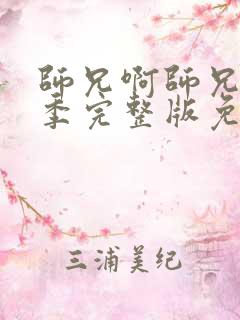 師兄啊師兄
季完整版免
三浦美纪